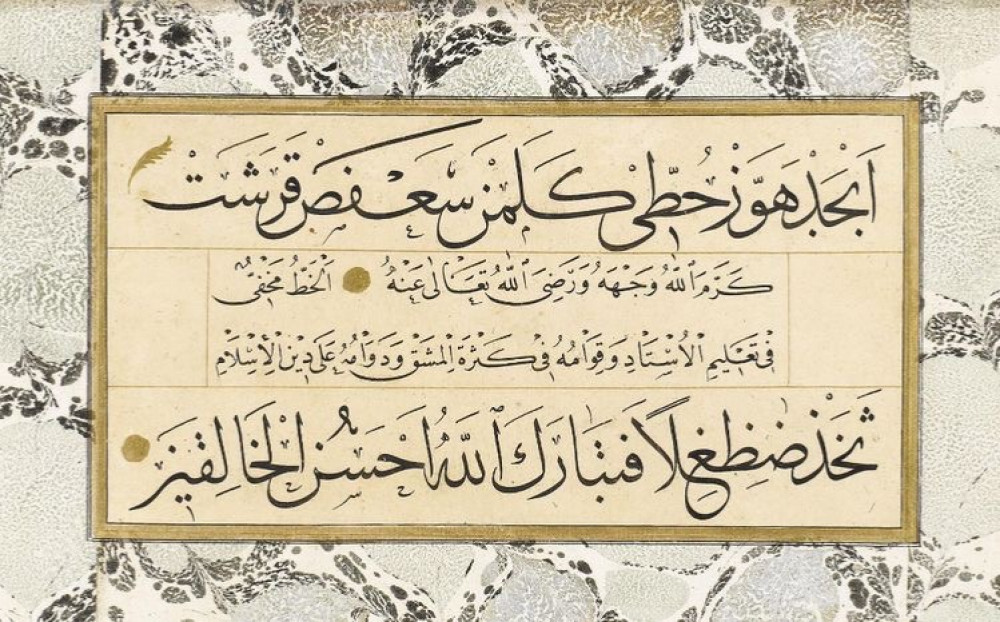 اَبْجَدْ هَوَّزْ حُطِّى كَلَمَنْ سَعَفَصْ قَرَشَتْ
كَرَّمَ اللّٰهُ وَجْهَهُ وَرَضِىَ اللّٰهُ تَعَالٰى عَنْهُ اَلْخَطُّ مَخْفِىٌّ
فِى تَعْلِيمِ الْاُسْتَادِ وَقِوَامُهُ فِى كَثْرَةِ الْمَشْقِ وَدَوَامُهُ عَلٰى دِينِ الْاِسْلَامِ
ثَخَذْ ضَظَغِلًا فَتَبَارَكَ اللّٰهُ اَحْسَنُ الْخَالِقِينَ